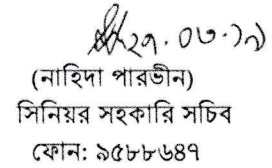 ২৭.০৩.১৯
(নাহিদা পারভীন)
সিনিয়র সহকারি সচিব
ফোন: ৯৫৮৮৬৪৭